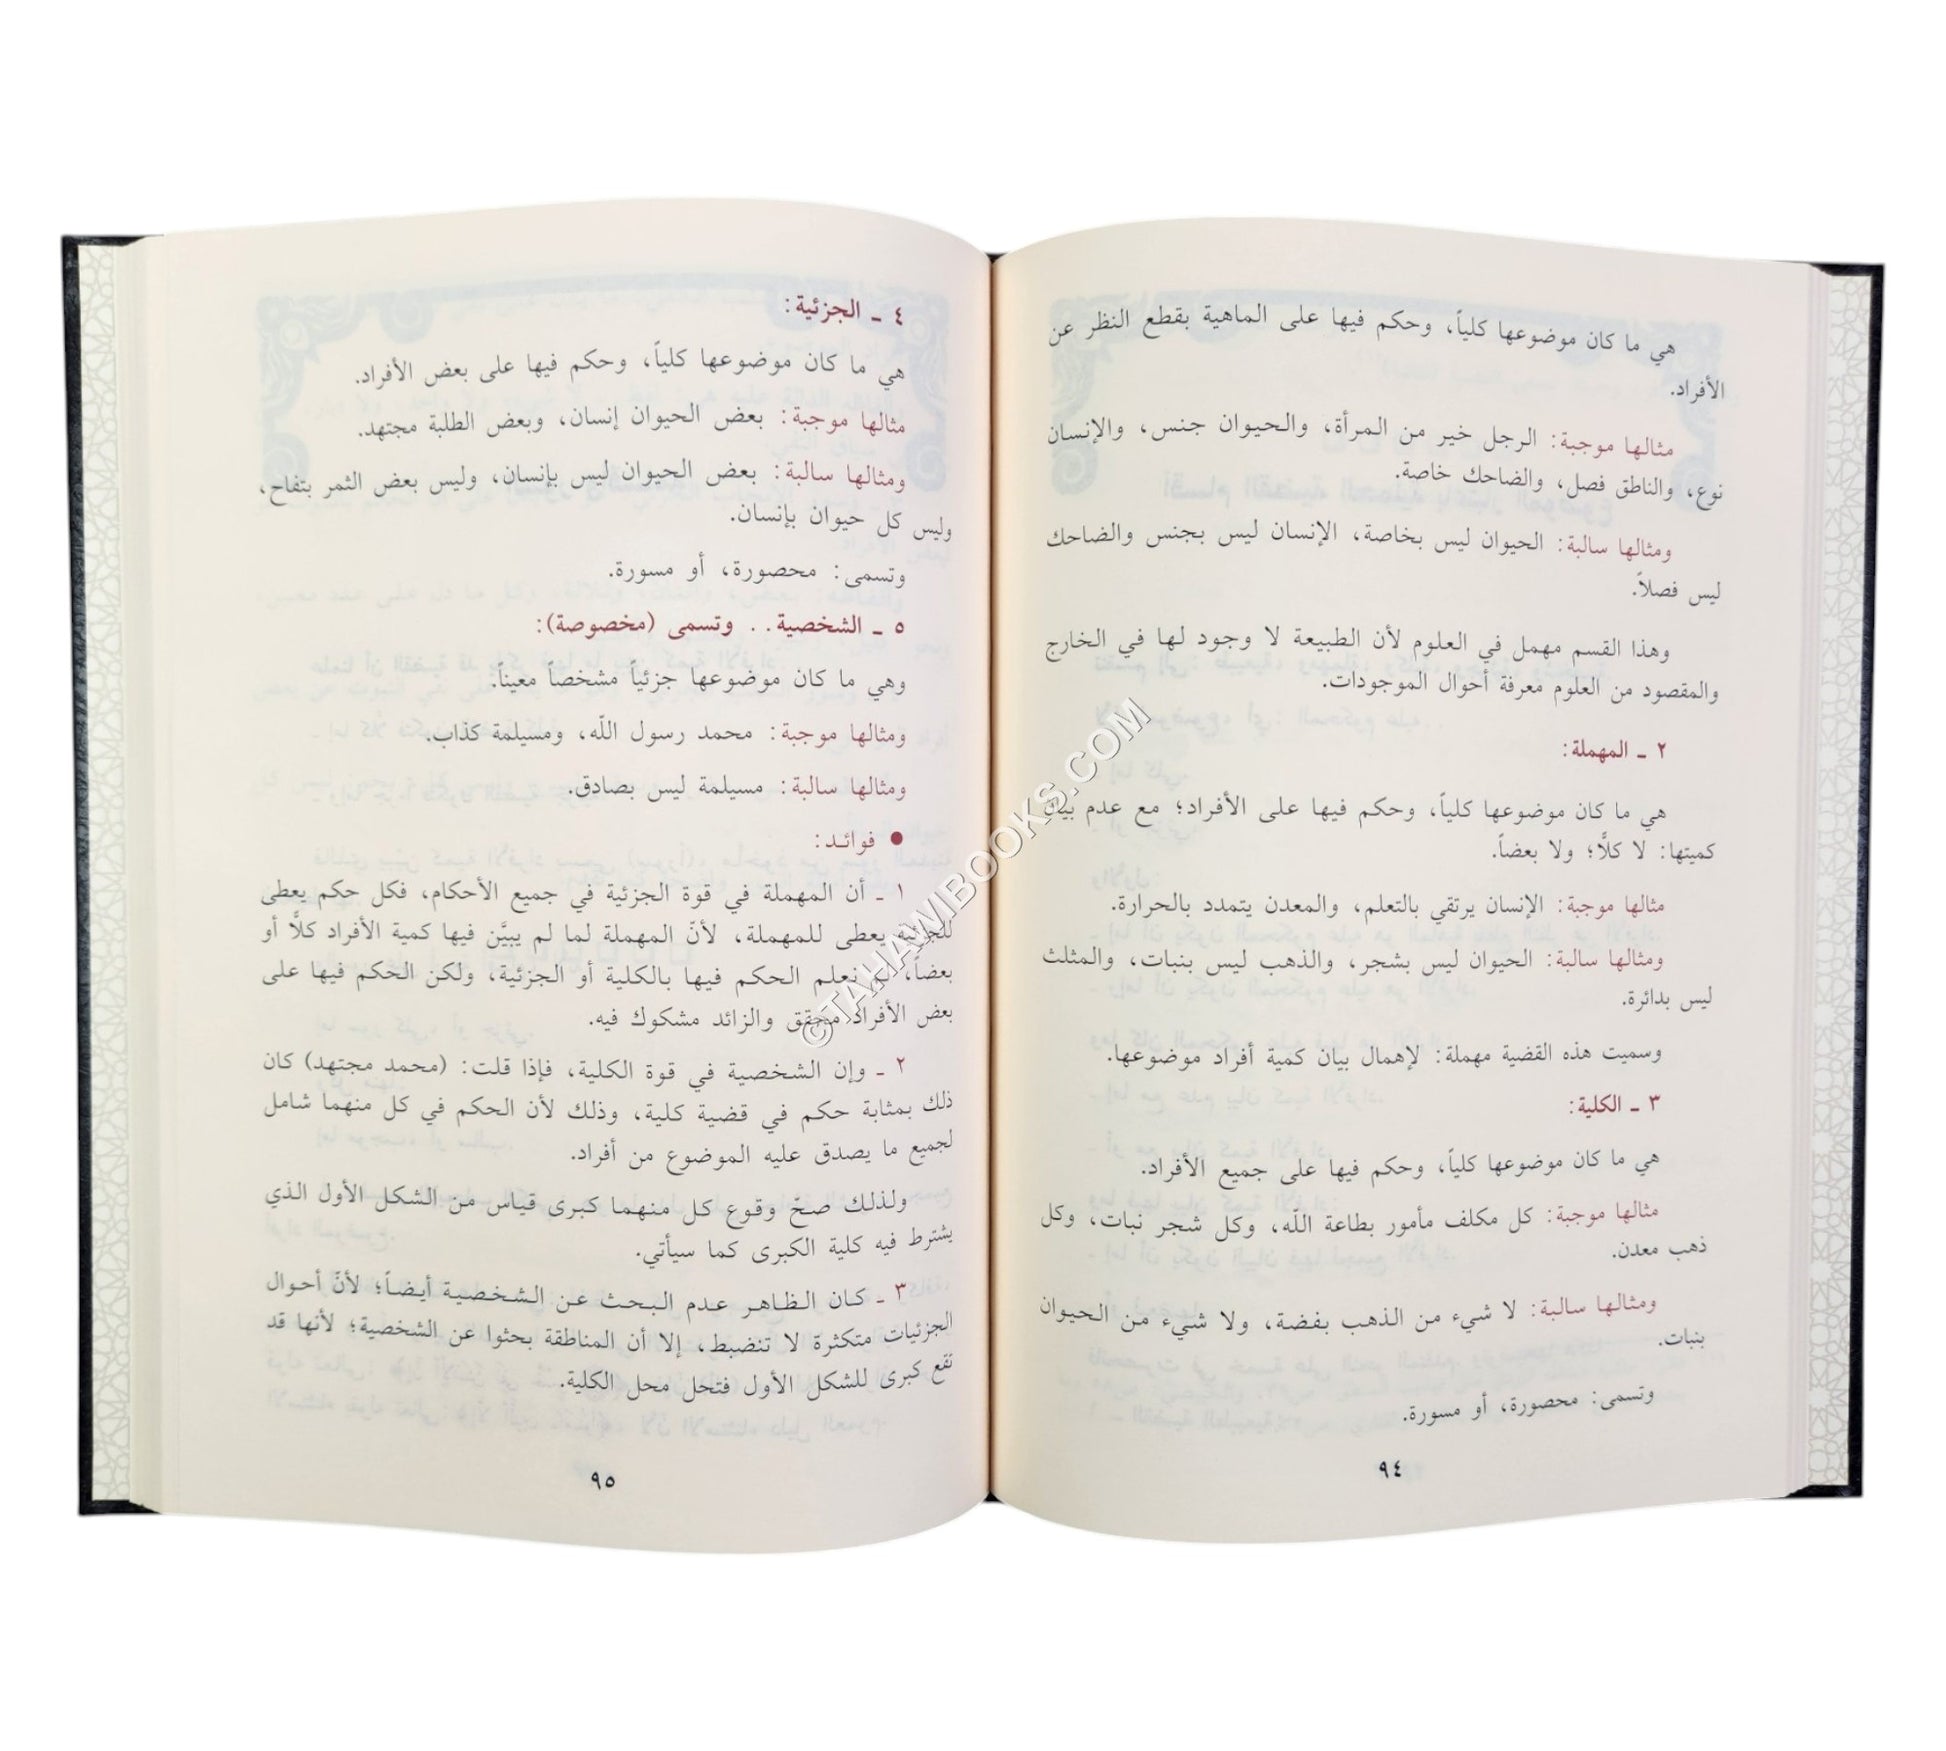 هي ما كان موضوعها كلياً، وحكم فيها على الماهية بقطع النظر عن
الأفراد.
مثالها موجبة: الرجل خير من المرأة، والحيوان جنس، والإنسان
نوع، والناطق فصل، والضاحك خاصة.
ومثالها سالبة: الحيوان ليس بخاصة، الإنسان ليس بجنس والضاحك
ليس فصلاً.
وهذا القسم مهمل في العلوم لأن الطبيعة لا وجود لها في الخارج
والمقصود من العلوم معرفة أحوال الموجودات.
٢ ـ المهملة:
هي ما كان موضوعها كلياً، وحكم فيها على الأفراد؛ مع عدم بيان
كميتها: لا كلًّا؛ ولا بعضاً.
مثالها موجبة: الإنسان يرتقي بالتعلم، والمعدن يتمدد بالحرارة.
ومثالها سالبة: الحيوان ليس بشجر، والذهب ليس بنبات، والمثلث
ليس بدائرة.
وسميت هذه القضية مهملة: لإهمال بيان كمية أفراد موضوعها.
٣ ـ الكلية:
هي ما كان موضوعها كلياً، وحكم فيها على جميع الأفراد.
مثالها موجبة: كل مكلف مأمور بطاعة الله، وكل شجر نبات، وكل
ذهب معدن.
ومثالها سالبة: لا شيء من الذهب بفضة، ولا شيء من الحيوان
بنبات.
وتسمى: محصورة، أو مسورة.
٩٤
٤ ـ الجزئية:
هي ما كان موضوعها كلياً، وحكم فيها على بعض الأفراد.
مثالها موجبة: بعض الحيوان إنسان، وبعض الطلبة مجتهد.
ومثالها سالبة: بعض الحيوان ليس بإنسان، وليس بعض الثمر بتفاح،
وليس كل حيوان بإنسان.
وتسمى: محصورة، أو مسورة.
٥ ـ الشخصية.. وتسمى (مخصوصة):
وهي ما كان موضوعها جزئياً مشخصاً معيناً.
ومثالها موجبة: محمد رسول الله، ومسيلمة كذاب.
ومثالها سالبة: مسيلمة ليس بصادق.
● فوائد:
١ ـ أن المهملة في قوة الجزئية في جميع الأحكام، فكل حكم يعطى
للجزئية يعطى للمهملة، لأنّ المهملة لما لم يبيَّن فيها كمية الأفراد كلًّا أو
بعضاً، لم نعلم الحكم فيها بالكلية أو الجزئية، ولكن الحكم فيها على
بعض الأفراد محقق والزائد مشكوك فيه.
٢ ـ وإن الشخصية في قوة الكلية، فإذا قلت: (محمد مجتهد) كان
ذلك بمثابة حكم في قضية كلية، وذلك لأن الحكم في كل منهما شامل
لجميع ما يصدق عليه الموضوع من أفراد.
ولذلك صحّ وقوع كل منهما كبرى قياس من الشكل الأول الذي
يشترط فيه كلية الكبرى كما سيأتي.
٣ ـ كان الظاهر عدم البحث عن الشخصية أيضاً؛ لأنّ أحوال
الجزئيات متكثرة لا تنضبط، إلا أن المناطقة بحثوا عن الشخصية؛ لأنها قد
تقع كبرى للشكل الأول فتحل محل الكلية.
٩٥
©TAHAWIBOOKS.COM